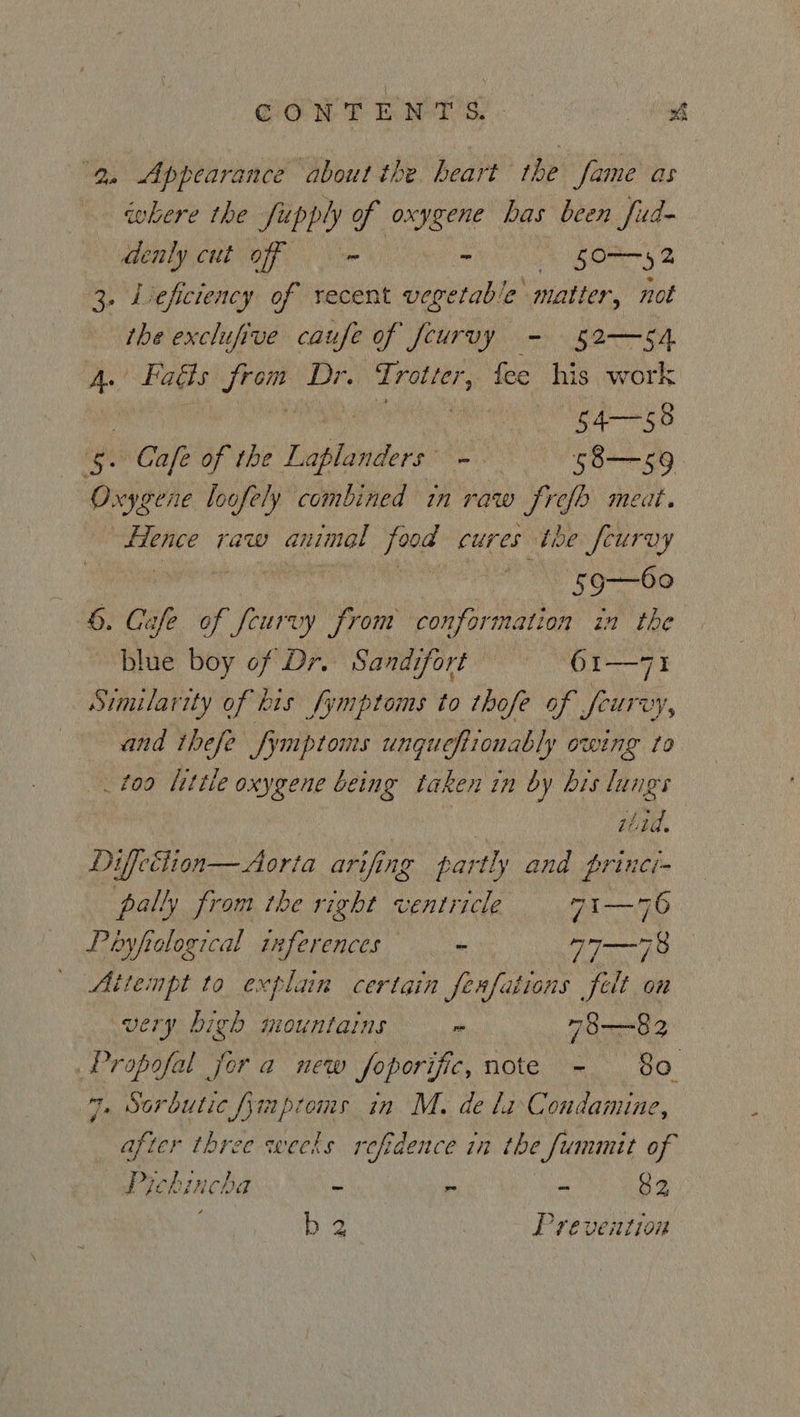 CONTENTS. xi
2. Appearance about the heart the ſame as
where the ſupply of oxygene has been ſud-
denly cut off - - 50—52
3. Deficiency of recent vegetable matter, not
the excluſive cauſe of ſcurvy - 52—54
4. Facts from Dr. Trotter, ſee his work
54—58
5. Caſe of the Laplanders - 58—59
Oxygene looſely combined in raw freſh meat.
Hence raw animal food cures the ſcurvy
59—60
6. Caſe of ſcurvy from conformation in the
blue boy of Dr. Sandifort 61—71
Similarity of his ſymptoms to thoſe of ſcurvy,
and theſe ſymptoms unqueſtionably owing to
too little oxygene being taken in by his lungs
ibid.
Diſſection—Aorta ariſing partly and princi-
pally from the right ventricle 71—76
Phyſiological inferences - 77—78
Attempt to explain certain ſenſations felt on
very high mountains - 78—82
Propoſal for a new ſoporific, note - 80
7. Scorbutic ſymptoms in M. de la Condamine,
after three weeks reſidence in the ſummit of
Pichincha - - - 82
b 2 Prevention